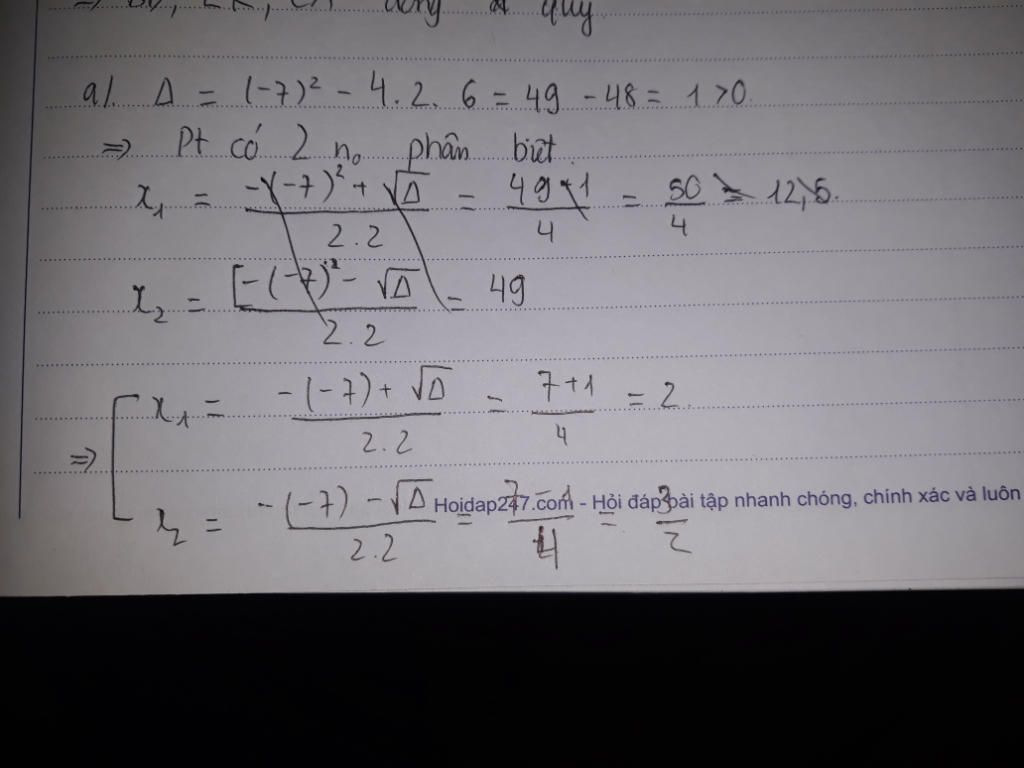 quy
a). Δ = (-7)² - 4.2.6 = 49 - 48 = 1 >0
=> Pt có 2 n₀ phân biệt.
x₁ = -(-7)² + √Δ / 2.2 = 49+1 / 4 = 50 / 4 = 12,5.
x₂ = [-(-7)² - √Δ / 2.2 = 49
=> [ x₁ = -(-7) + √Δ / 2.2 = 7+1 / 4 = 2.
x₂ = -(-7) - √Δ / 2.2 = 7-1 / 4 = 3 / 2
Hoidap247.com - Hỏi đáp bài tập nhanh chóng, chính xác và luôn